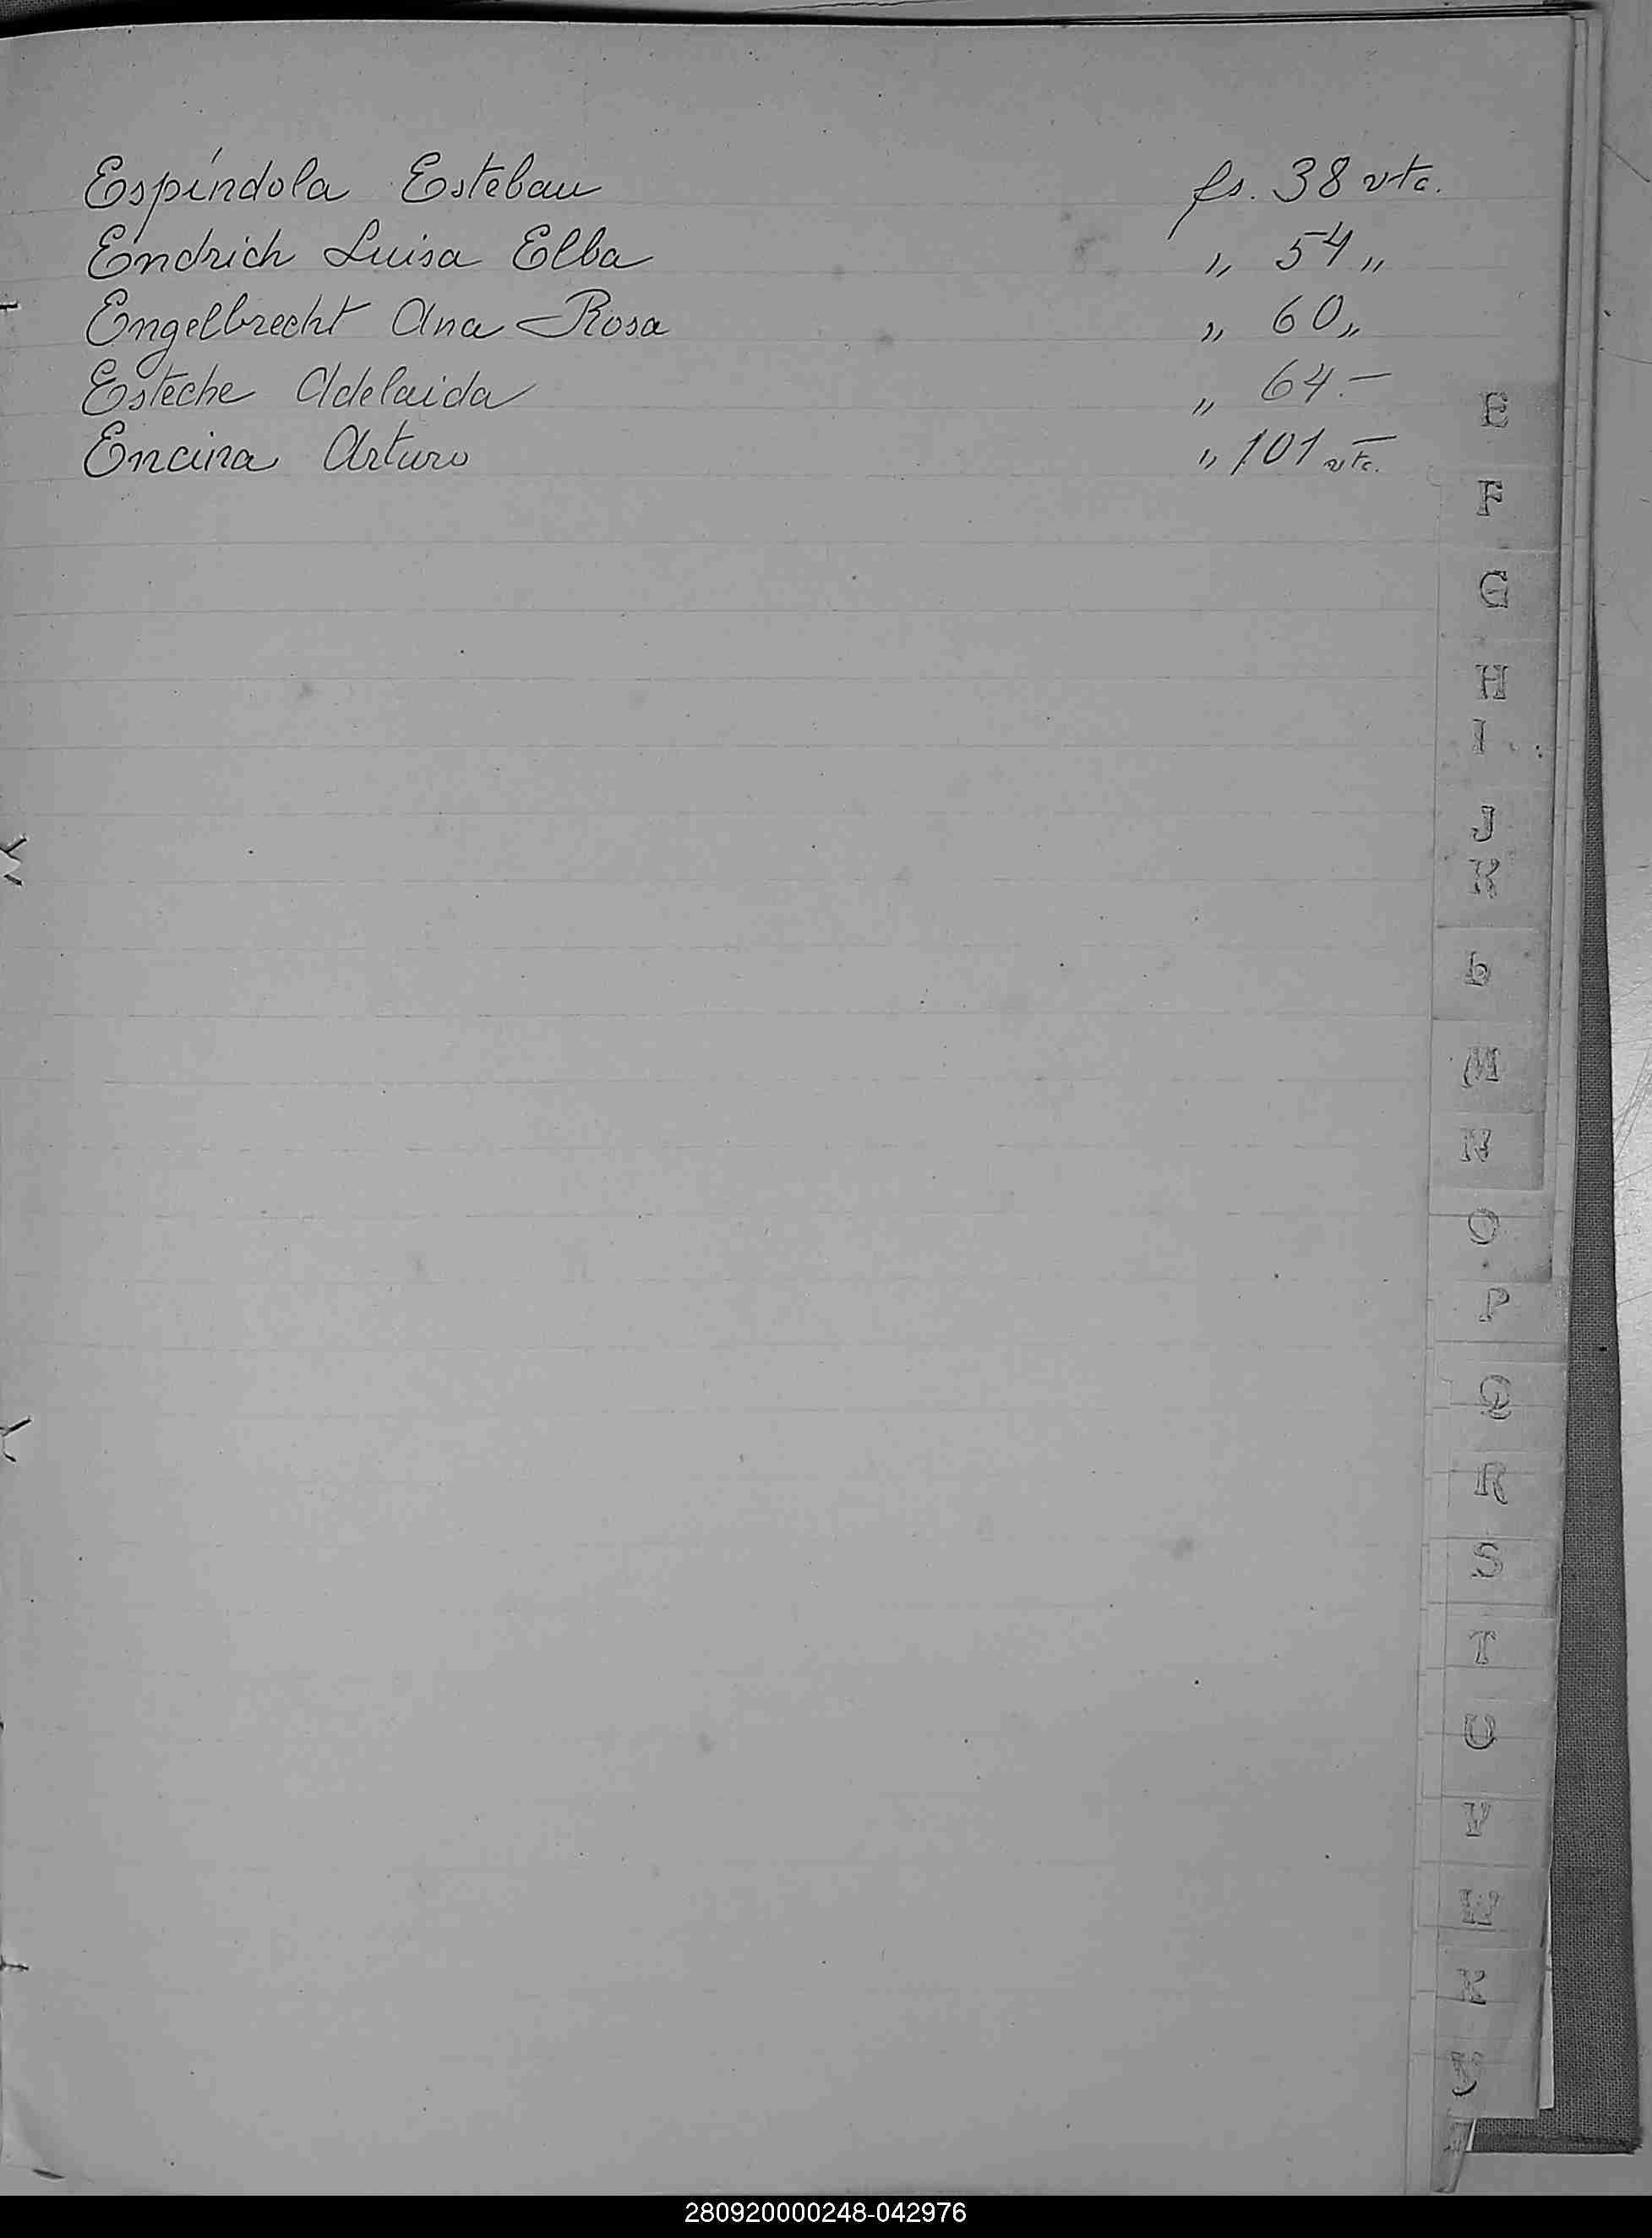 Espíndola Esteban fs. 38 vta.
Endrich Luisa Elba „ 54 „
Engelbrecht Ana Rosa „ 60 „
Esteche Adelaida „ 64.—
Encina Arturo „ 101 vta. —
E
F
G
H
I
J
K
L
M
N
O
P
Q
R
S
T
U
V
W
X
Y
280920000248-042976